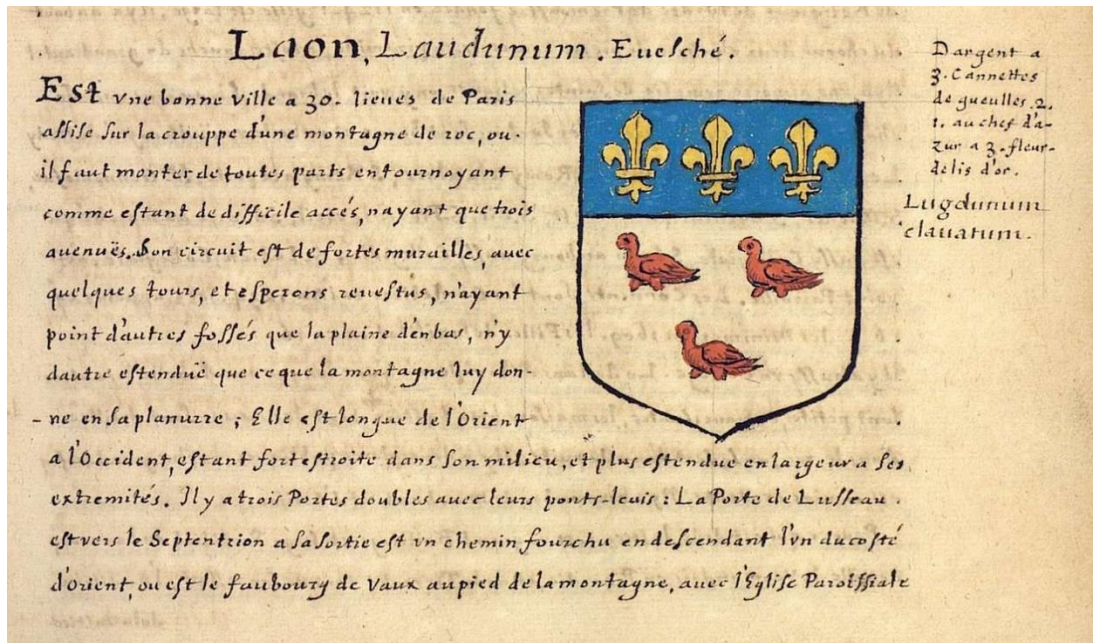 Laon, Laudunum. Euesché.
Est vne bonne ville a 30. lieues de Paris
assise sur la crouppe d'une montagne de roc, ou
il faut monter de toutes parts en tournoyant
comme estant de difficile accés, nayant que trois
auenuës. Son circuit est de fortes murailles, auec
quelques tours, et esperons reuestus, n'ayant
point d'autres fossés que la plaine d'enbas, n'y
dautre estenduë que ce que la montagne luy don-
-ne en sa planurre ; Elle est longue de l'Orient
a l'Occident, estant fort estroite dans son milieu, et plus estendue en largeur a ses
extremités. Il y a trois Portes doubles auec leurs ponts-leuis : La Porte de Lusseau
est vers le Septentrion a sa sortie est vn chemin fourchu en descendant l'vn du costé
d'Orient, ou est le faubourg de Vaux au pied de la montagne, auec l'Eglise Paroissiale
D'argent a
3. Cannettes
de gueulles. 2.
1. au chef d'a-
zur a 3. fleur-
delis d'or.
Lugdunum
clauatum.